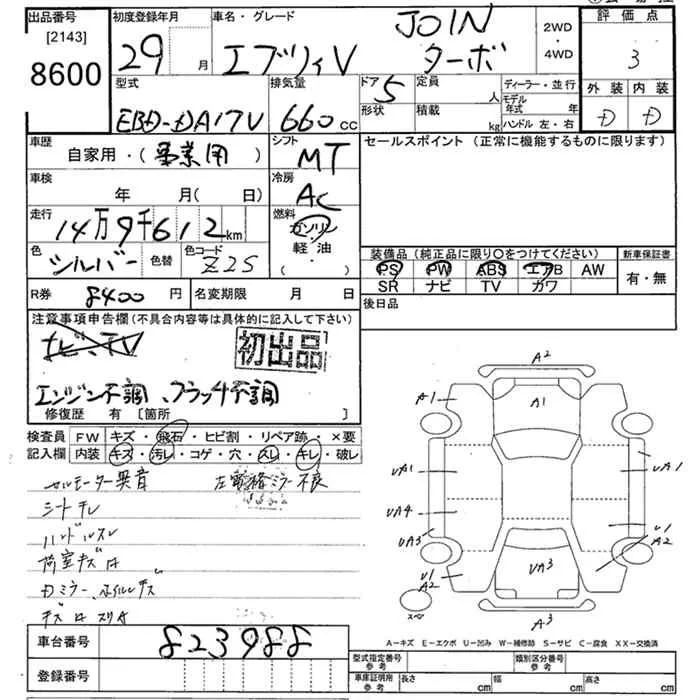 出品番号
[2143]
8600
初度登録年月
29 月
車名・グレード
エブリィV JOIN ターボ
2WD
・
4WD
評価点
3
外装 内装
D D
型式
EBD-DA17V
排気量
660 cc
ドア 5
形状
定員 人
積載 kg
ディーラー・並行
モデル年式 年
ハンドル 左・右
車歴
自家用・(事業用)
シフト
MT
セールスポイント (正常に機能するものに限ります)
車検
年 月( 日)
冷房
AC
走行
14万9千612km
燃料
ガソリン
軽油
( ・ )
色
シルバー
色替
色コード
Z2S
装備品(純正品に限り○をつけてください)
新車保証書
PS PW ABS エアB AW
SR ナビ TV カワ
有・無
R券 8400 円
名変期限 月 日
後日品
注意事項申告欄(不具合内容等は具体的に記入して下さい)
ナビ、TV
初出品
エンジン不調、クラッチ不調
修復歴 有 [箇所 ]
検査員 FW キズ・飛石・ヒビ割・リペア跡・×要
記入欄 内装 キズ・汚レ・コゲ・穴・スレ・キレ・破レ
セルモーター異音 左電格ミラー不良
シートキレ
ハンドルスレ
荷室キズ
車台番号 823988
登録番号
A2
A1 A1
UA1 UA1
UA4
UA3
U1
A2
U1
A2
UA3
A3
スペア
A-キズ E-エクボ U-凹み W-補修跡 S-サビ C-腐食 XX-交換済
型式指定番号 参考
類別区分番号 参考
車庫証明用 参考 長さ cm 幅 cm 高さ cm